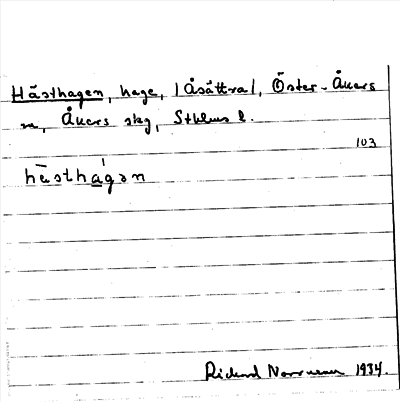 Hästhagen, hage, /Åsättra/, Öster-Åkers
sn, Åkers skg, Sthlms l.
103
hǟsthágən
Richard 1934.